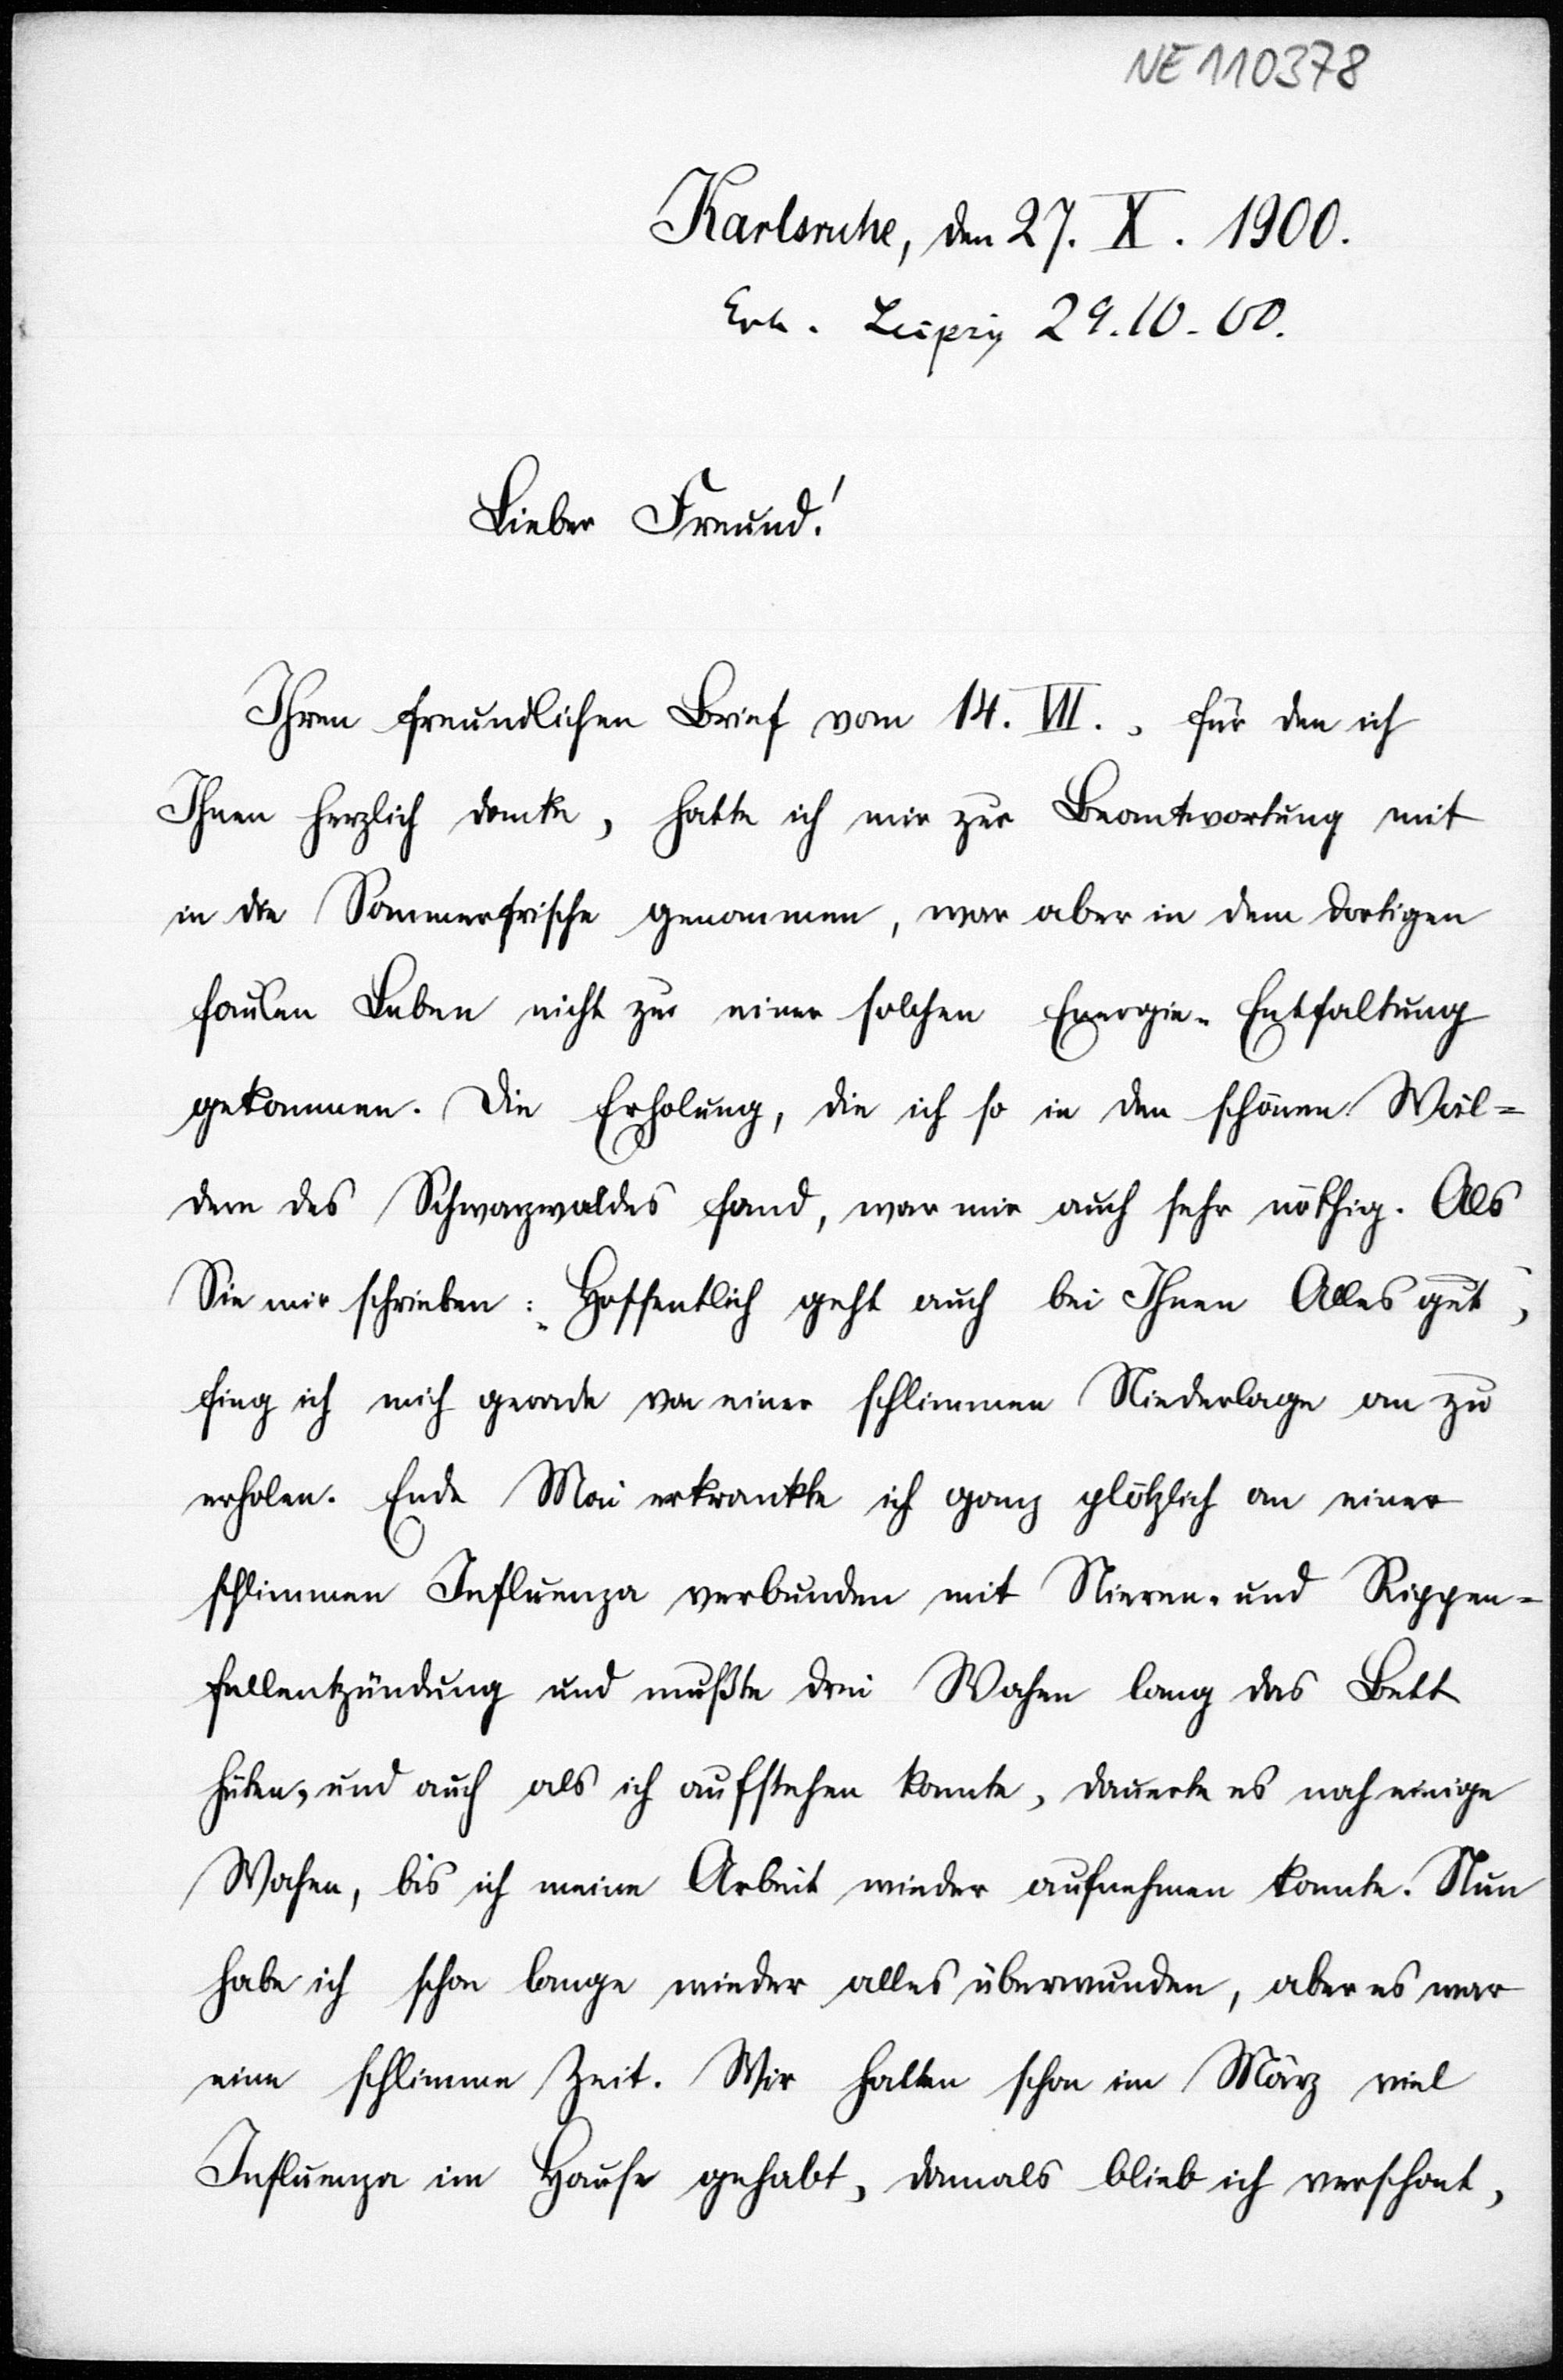 NE 110378
Karlsruhe, den 27. X. 1900.
Erh. Leipzig 29.10.00.
Lieber Freund!
Ihren freundlichen Brief vom 14. VII., für den ich
Ihnen herzlich danke, hatte ich mir zur Beantwortung mit
in die Sommerfrische genommen, war aber in dem dortigen
faulen Leben nicht zu einer solchen Energie-Entfaltung
gekommen. Die Erholung, die ich so in den schönen Wäl=
dern des Schwarzwaldes fand, war mir auch sehr nöthig. Als
Sie mir schrieben: „Hoffentlich geht auch bei Ihnen Alles gut“,
fing ich mich gerade von einer schlimmen Niederlage an zu
erholen. Ende Mai erkrankte ich ganz plötzlich an einer
schlimmen Influenza verbunden mit Nieren- und Rippen=
fellentzündung und mußte drei Wochen lang das Bett
hüten, und auch als ich aufstehen konnte, dauerte es noch einige
Wochen, bis ich meine Arbeit wieder aufnehmen konnte. Nun
habe ich schon lange wieder alles überwunden, aber es war
eine schlimme Zeit. Wir hatten schon im März viel
Influenza im Hause gehabt, damals blieb ich verschont,